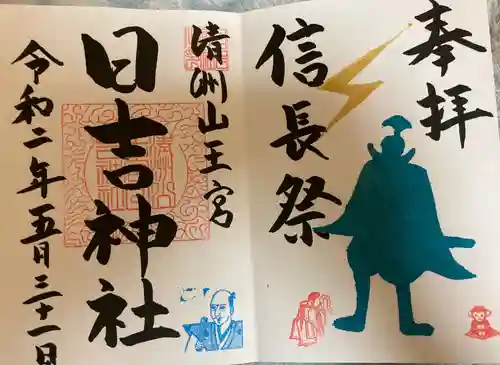 奉拝
信長祭
清洲山王宮
日吉神社
令和二年五月三十一日